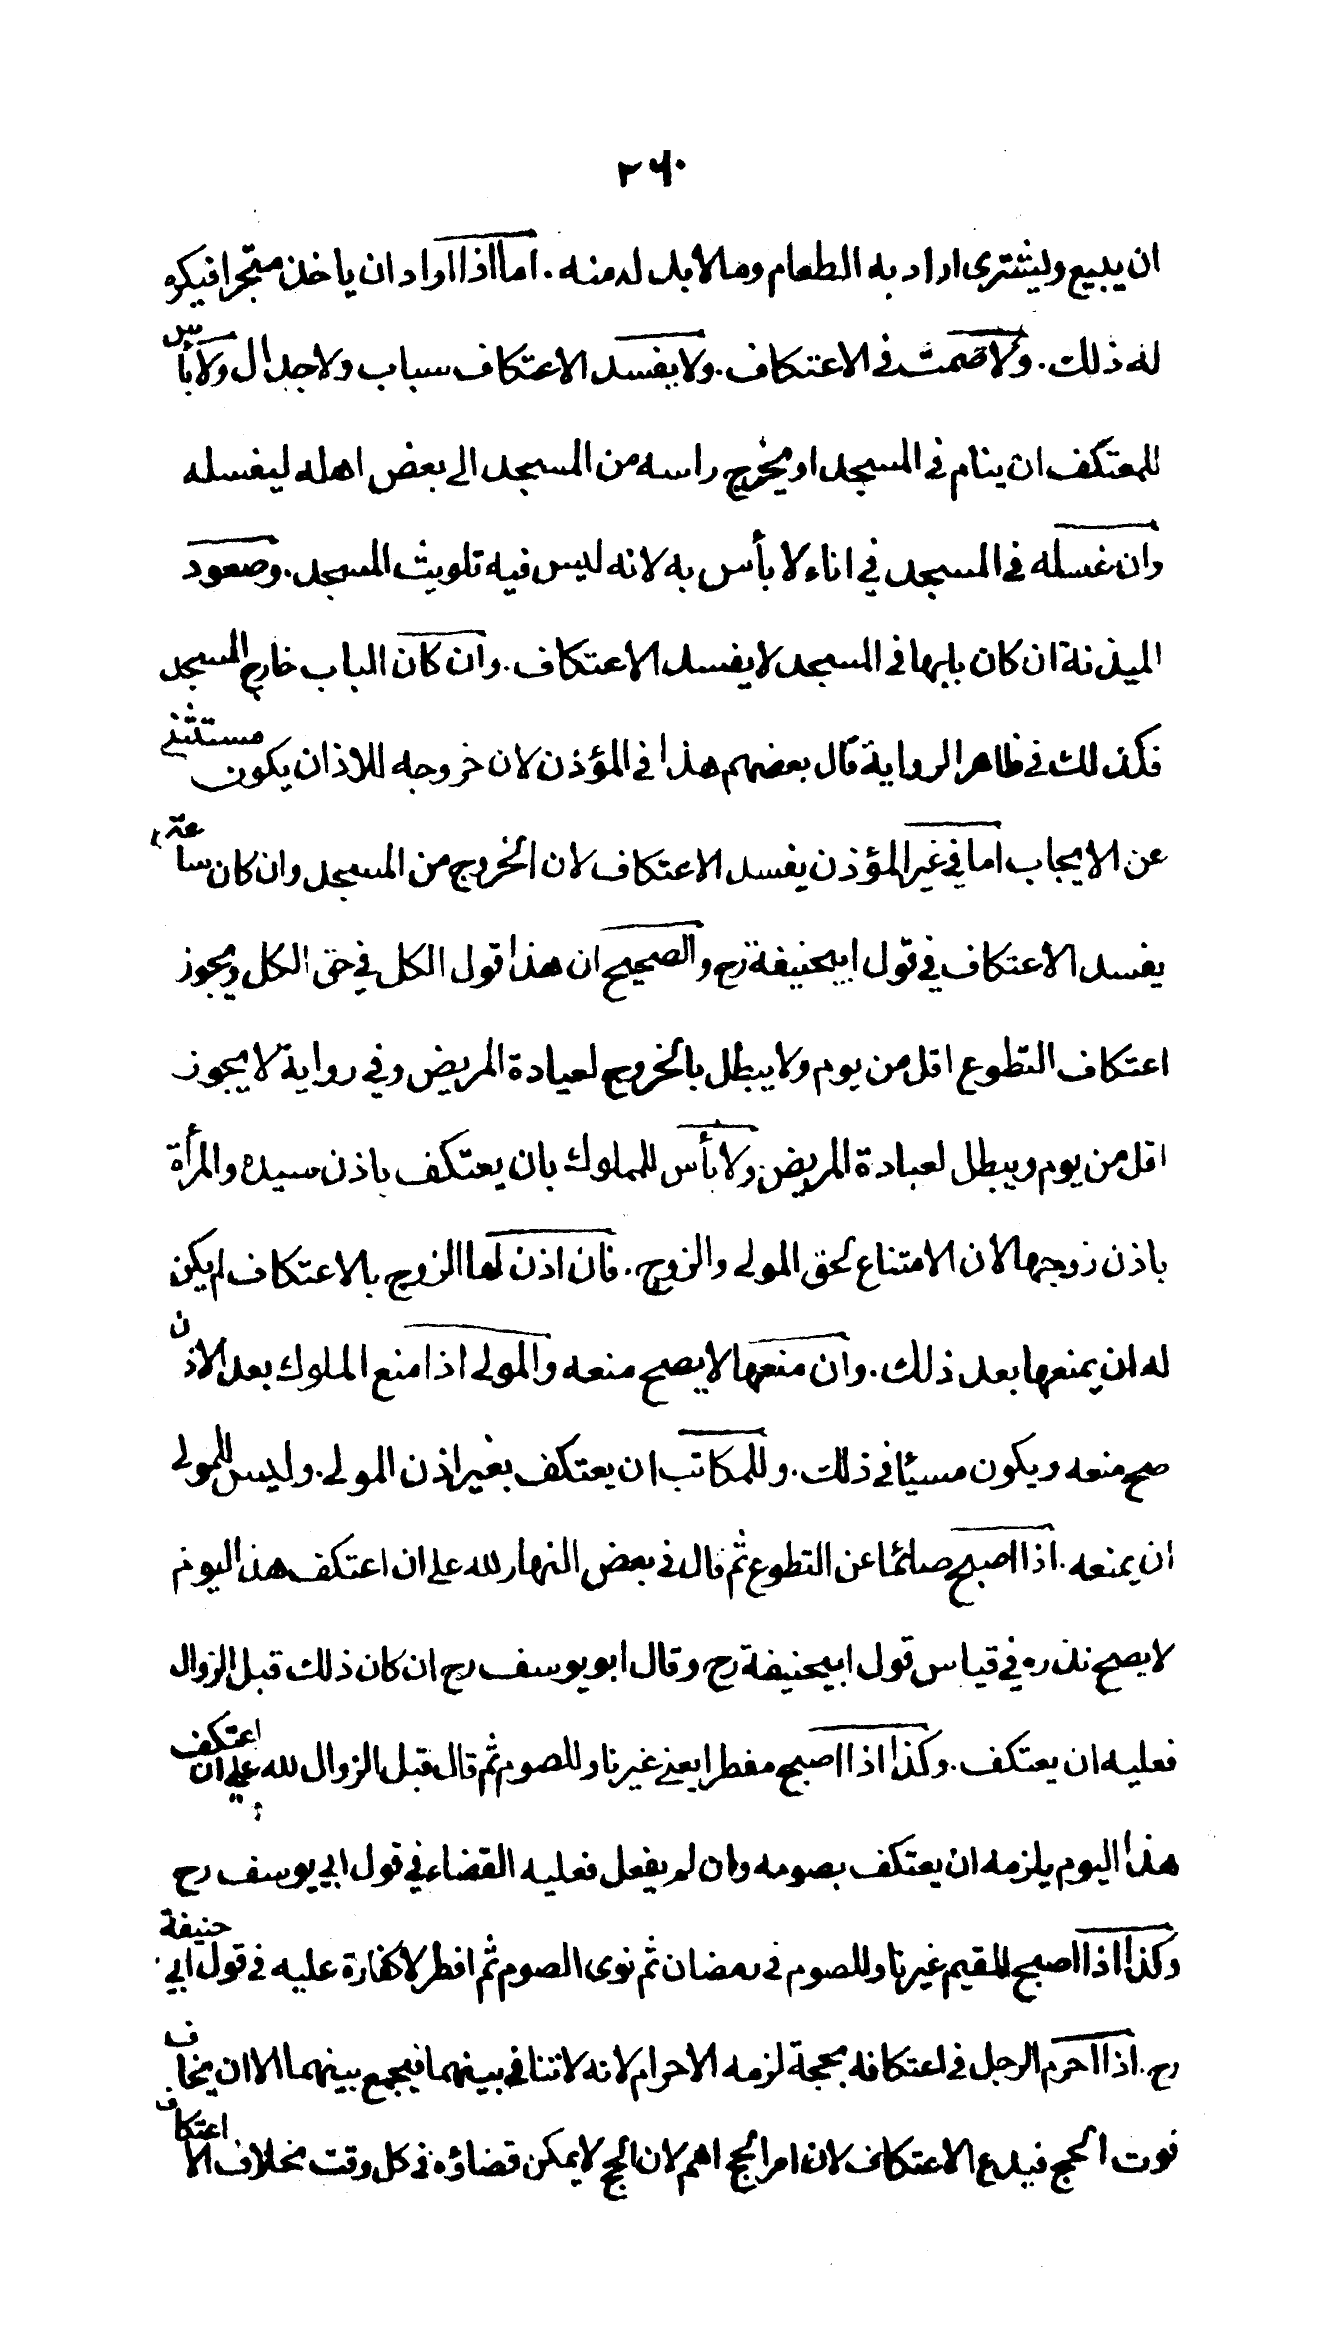 ٢٦٠
ان يبيع وليشترى اراد به الطعام وما لا بد له منه . اما اذا اراد ان ياخذ متجرا فيكره
له ذلك . ولا صمت في الاعتكاف . ولا يفسد الاعتكاف سباب ولا جدال ولا بأس
للمعتكف ان ينام في المسجد او يخرج راسه من المسجد الى بعض اهله ليغسله
وان غسله في المسجد في اناء لا بأس به لانه ليس فيه تلويث المسجد . وصعود
الميذنة ان كان بابها في المسجد لا يفسد الاعتكاف . وان كان الباب خارج المسجد
فكذلك في ظاهر الرواية قال بعضهم هذا في المؤذن لان خروجه للاذان يكون مستثنى
عن الايجاب اما في غير المؤذن يفسد الاعتكاف لان الخروج من المسجد وان كان ساعة
يفسد الاعتكاف في قول ابيحنيفة رح والصحيح ان هذا قول الكل في حق الكل ويجوز
اعتكاف التطوع اقل من يوم ولا يبطل بالخروج لعيادة المريض وفي رواية لا يجوز
اقل من يوم ويبطل لعيادة المريض ولا بأس للمملوك بان يعتكف باذن سيده والمرأة
باذن زوجها لان الامتناع لحق المولى والزوج . فان اذن لها الزوج بالاعتكاف لم يكن
له ان يمنعها بعد ذلك . وان منعها لا يصح منعه والمولى اذا منع المملوك بعد الاذن
صح منعه ويكون مسيئا في ذلك . وللمكاتب ان يعتكف بغير اذن المولى . وليس للمولى
ان يمنعه . اذا اصبح صائما عن التطوع ثم قال في بعض النهار لله علي ان اعتكف هذا اليوم
لا يصح نذره في قياس قول ابيحنيفة رح وقال ابو يوسف رح ان كان ذلك قبل الزوال
فعليه ان يعتكف . وكذا اذا اصبح مفطرا يعني غير ناو للصوم ثم قال قبل الزوال لله علي ان اعتكف
هذا اليوم يلزمه ان يعتكف بصومه وان لم يفعل فعليه القضاء في قول ابي يوسف رح
وكذا اذا اصبح المقيم غير ناو للصوم في رمضان ثم نوى الصوم ثم افطر لا كفارة عليه في قول ابي حنيفة
رح . اذا احرم الرجل في اعتكافه بحجة لزمه الاحرام لانه لا تنافي بينهما فيجمع بينهما الا ان يخاف
فوت الحج فيدع الاعتكاف لان امر الحج اهم لان الحج لا يمكن قضاؤه في كل وقت بخلاف الاعتكاف